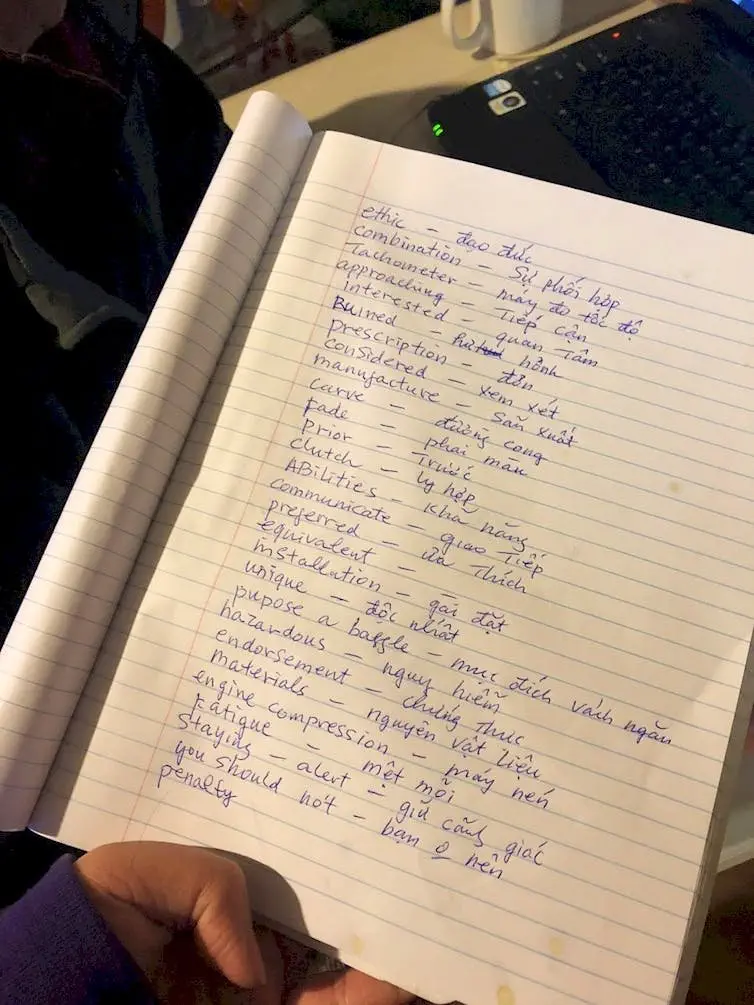 ethic - đạo đức
combination - Sự phối hợp
Tachometer - máy đo tốc độ
approaching - Tiếp cận
interested - quan Tâm
Ruined - hỏnh
prescription - đơn
considered - xem xét
manufacture - Sản xuất
carve - đường cong
Fade - phai màu
Prior - Trước
clutch - ly hợp
ABilities - Khả năng
communicate - giao Tiếp
preferred - ưa Thích
equivalent -
installation - gài đặt
unique - độc nhất
pupose a baffle - mục đích vách ngăn
hazardous - nguy hiểm
endorsement - chứng Thực
materials - nguyên vật liệu
engine compression - máy nén
Fatigue - mệt mỏi
Staying - alert - giữ cảnh giác
you should not - bạn 0 nên
penalty